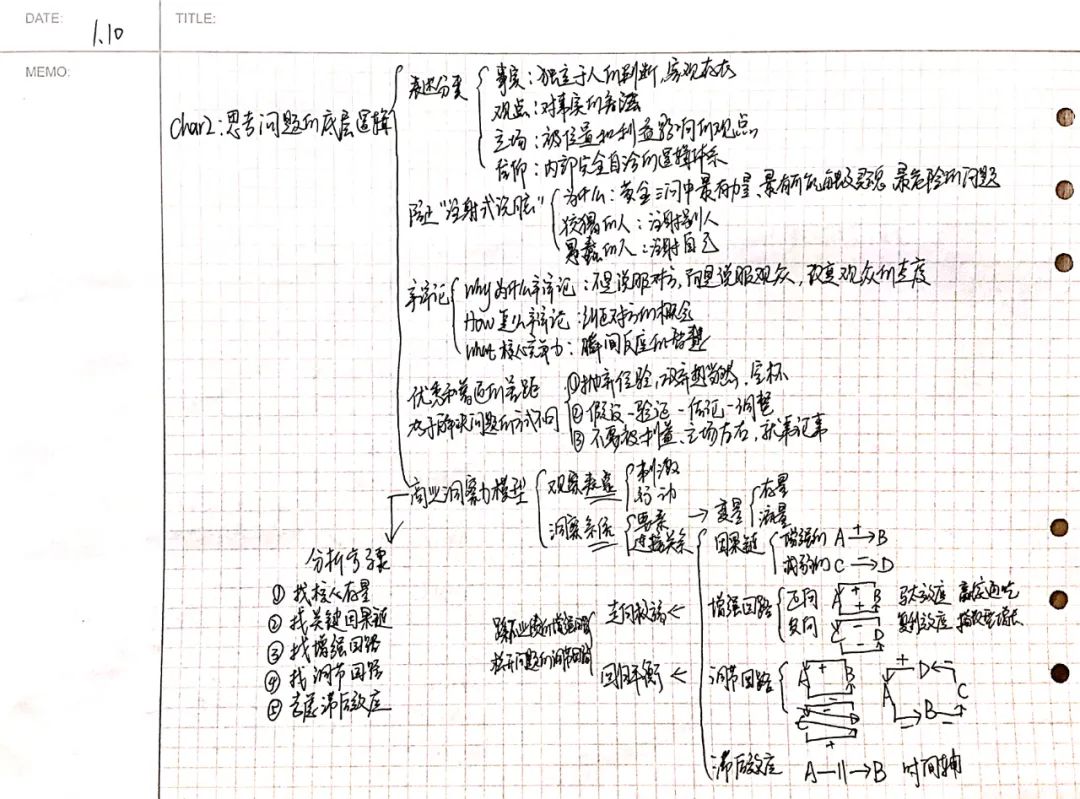 DATE: 1.10
TITLE:
MEMO:
Char2:思考问题的底层逻辑
表述分类
事实:独立于人的判断,客观存在
观点:对事实的看法
立场:被位置和利益影响的观点
信仰:内部完全自洽的逻辑体系
防止"注射式洗脑"
为什么:黄金三问中最有力量、最有可能触及灵魂、最危险的问题
狡猾的人:注射别人
愚蠢的人:注射自己
辩论
Why 为什么辩论:不是说服对方,而是说服观众,改变观众的态度
How 怎么辩论:纠正对方的概念
What 核心竞争力:瞬间反应的智慧
优秀和普通的差距
在于解决问题的方式不同
①抛弃经验,放弃想当然,空杯
②假设-验证-佐证-调整
③不要被利益、立场左右,就事论事
商业洞察力模型
观察表象
刺激
行动
洞察系统
要素
连接关系
→变量
存量
流量
因果链
增强的 A + → B
减弱的 C - → D
增强回路
正向 A + B +
负向 C - D -
马太效应 赢家通吃
复利效应 指数型增长
走向极端 ←
调节回路
A + B -
C - D +
A + D - C - B -
回归平衡 ←
滞后效应 A—||→B 时间轴
分析步骤
①找核心存量
②找关键因果链
③找增强回路
④找调节回路
⑤考虑滞后效应